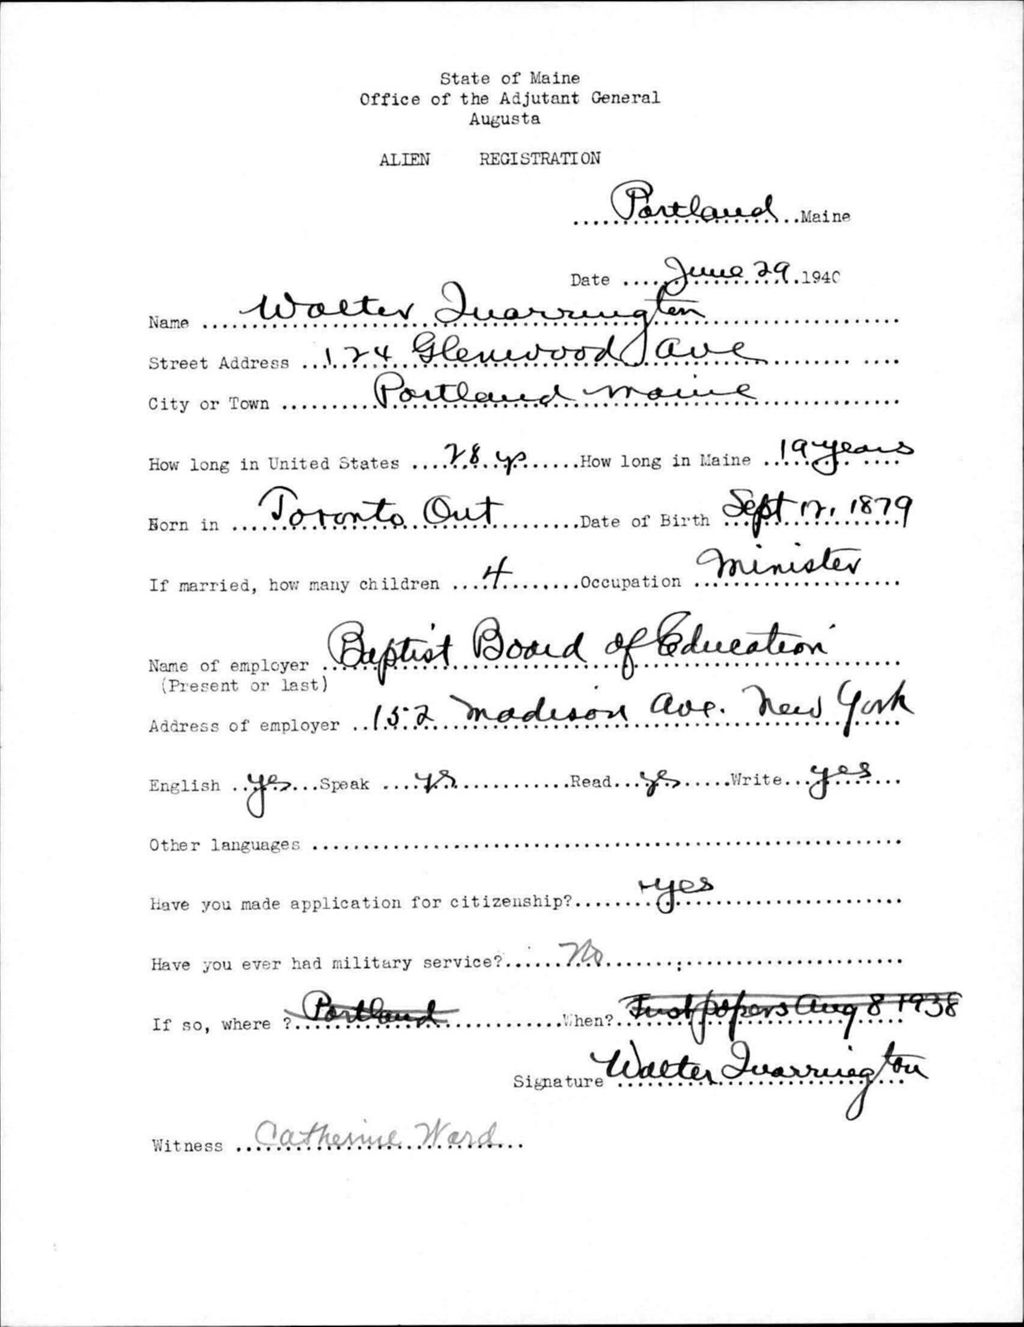 State of Maine
Office of the Adjutant General
Augusta
ALIEN REGISTRATION
Portland Maine
Date June 29 1940
Name Walter Quarrington
Street Address 124 Glenwood Ave
City or Town Portland Maine
How long in United States 28 yr How long in Maine 19 years
Born in Toronto Ont Date of Birth Sept 12, 1879
If married, how many children 4 Occupation Minister
Name of employer Baptist Board of Education
(Present or last)
Address of employer 152 Madison Ave. New York
English yes Speak yes Read yes Write yes
Other languages
Have you made application for citizenship? yes
Have you ever had military service? No
If so, where ? Portland When? First papers Aug 8 1938
Signature Walter Quarrington
Witness Catherine Ward